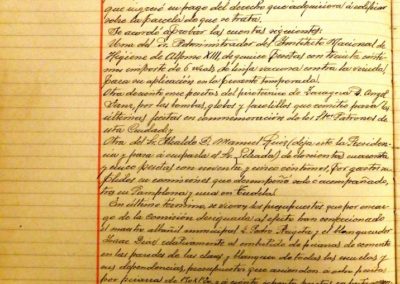 que ingresó en pago del derecho que adquiriera á edificar
sobre la parcela de que se trata.
Se acordó aprobar las cuentas siguientes:
Una del Sr. Administrador del Instituto Nacional de
Higiene de Alfonso XIII, de quince pesetas con treinta cénti-
mos importe de 6 viales de linfa vacuna contra la viruela
para su aplicación en la presente temporada.
Otra de ciento once pesetas del pirotécnico de Zaragoza D. Angel
Sanz, por las bombas, globos y farolillos que remitió para las
últimas fiestas en conmemoración de los Stos. Patronos de
esta Ciudad; y
Otra del Sr. Alcalde D. Manuel (deja este la Presiden-
cia y pasa á ocuparla el Sr. ) de doscientas cuarenta
y cinco pesetas con noventa y cinco céntimos, por gastos su-
plidos en comisiones que desempeñó solo ó acompañado,
tres en Pamplona y una en Tudela.
En último término, se vieron los presupuestos que por encar-
go de la comisión designada al efecto han confeccionado
el maestro albañil municipal D. Pedro y el blanqueador
relativamente al embutido de de cemento
en las paredes de las clases y blanqueo de todas las escuelas y
sus dependencias, presupuestos que ascienden á
por